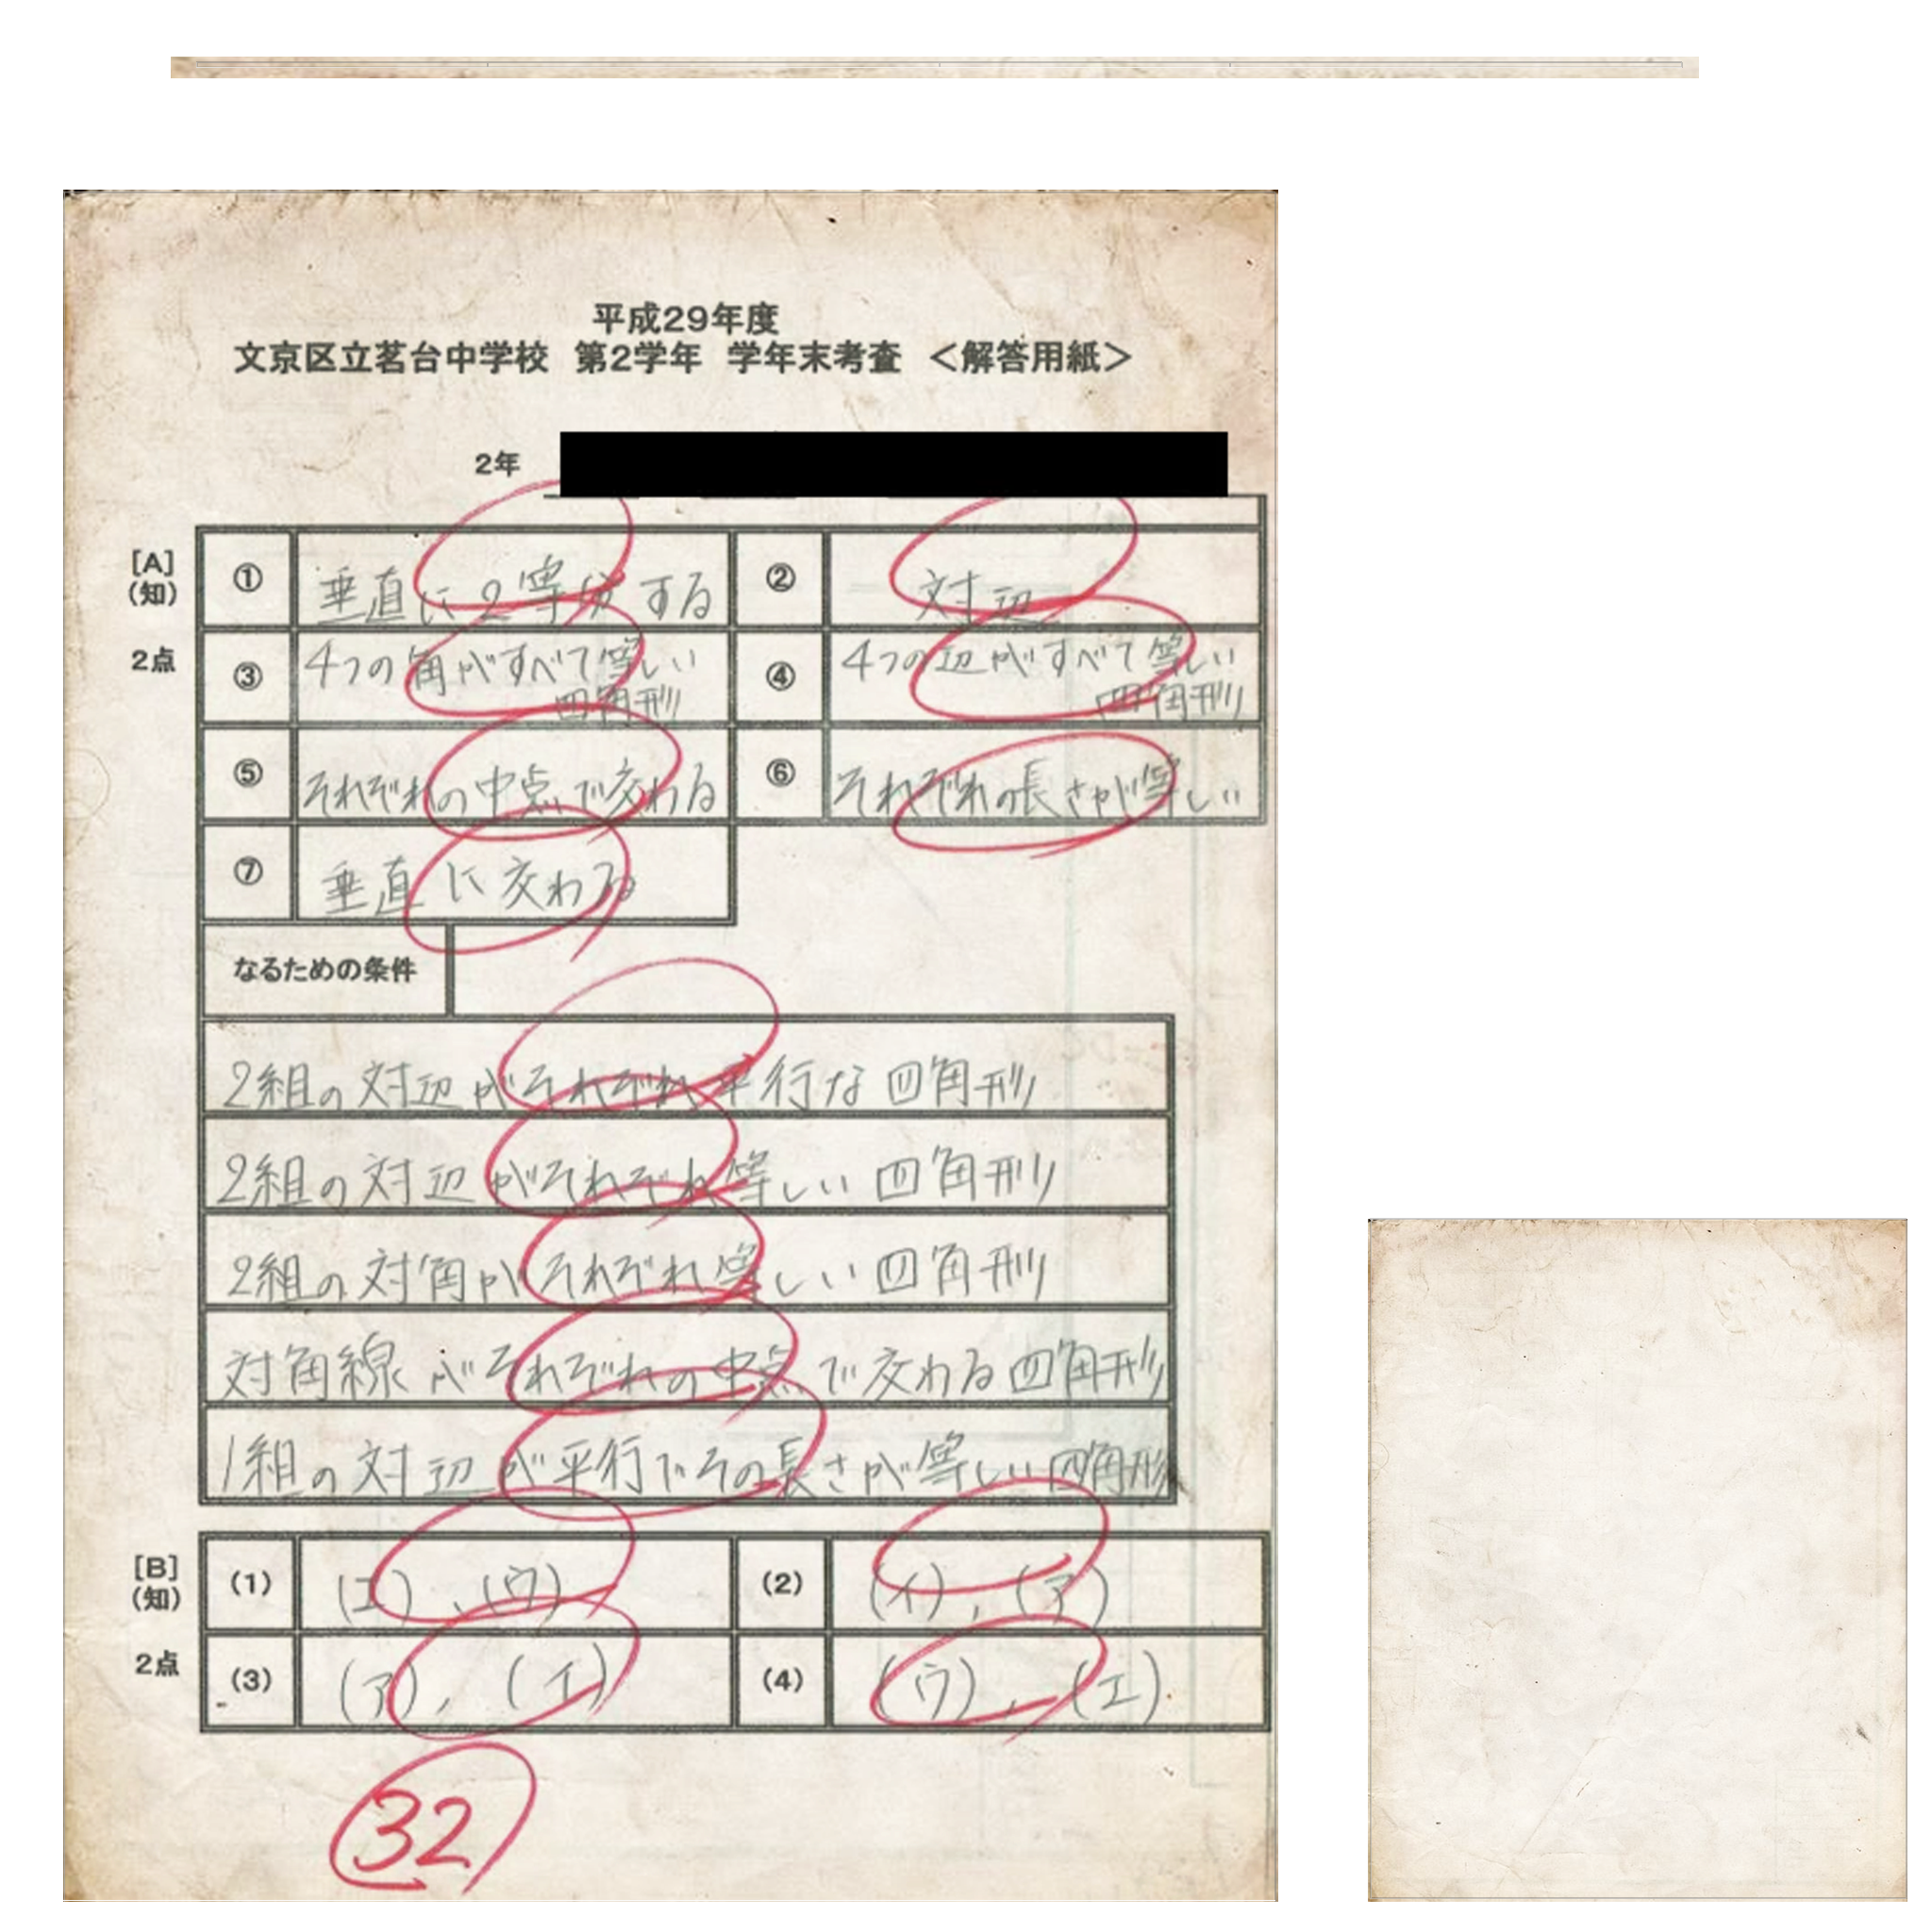 平成29年度
文京区立茗台中学校 第2学年 学年末考査 <解答用紙>
2年
[A]
(知)
2点
① 垂直に2等分する ② 対辺
③ 4つの角がすべて等しい四角形 ④ 4つの辺がすべて等しい四角形
⑤ それぞれの中点で交わる ⑥ それぞれの長さが等しい
⑦ 垂直に交わる
なるための条件
2組の対辺がそれぞれ平行な四角形
2組の対辺がそれぞれ等しい四角形
2組の対角がそれぞれ等しい四角形
対角線がそれぞれの中点で交わる四角形
1組の対辺が平行でその長さが等しい四角形
[B]
(知)
2点
(1) (エ),(ウ) (2) (イ),(ア)
(3) (ア),(イ) (4) (ウ),(エ)
32